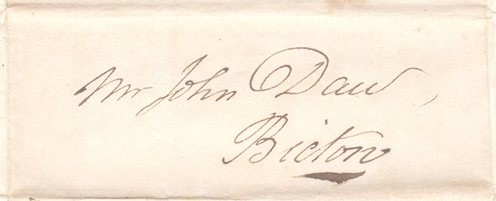 Mr John Daw,
Bicton